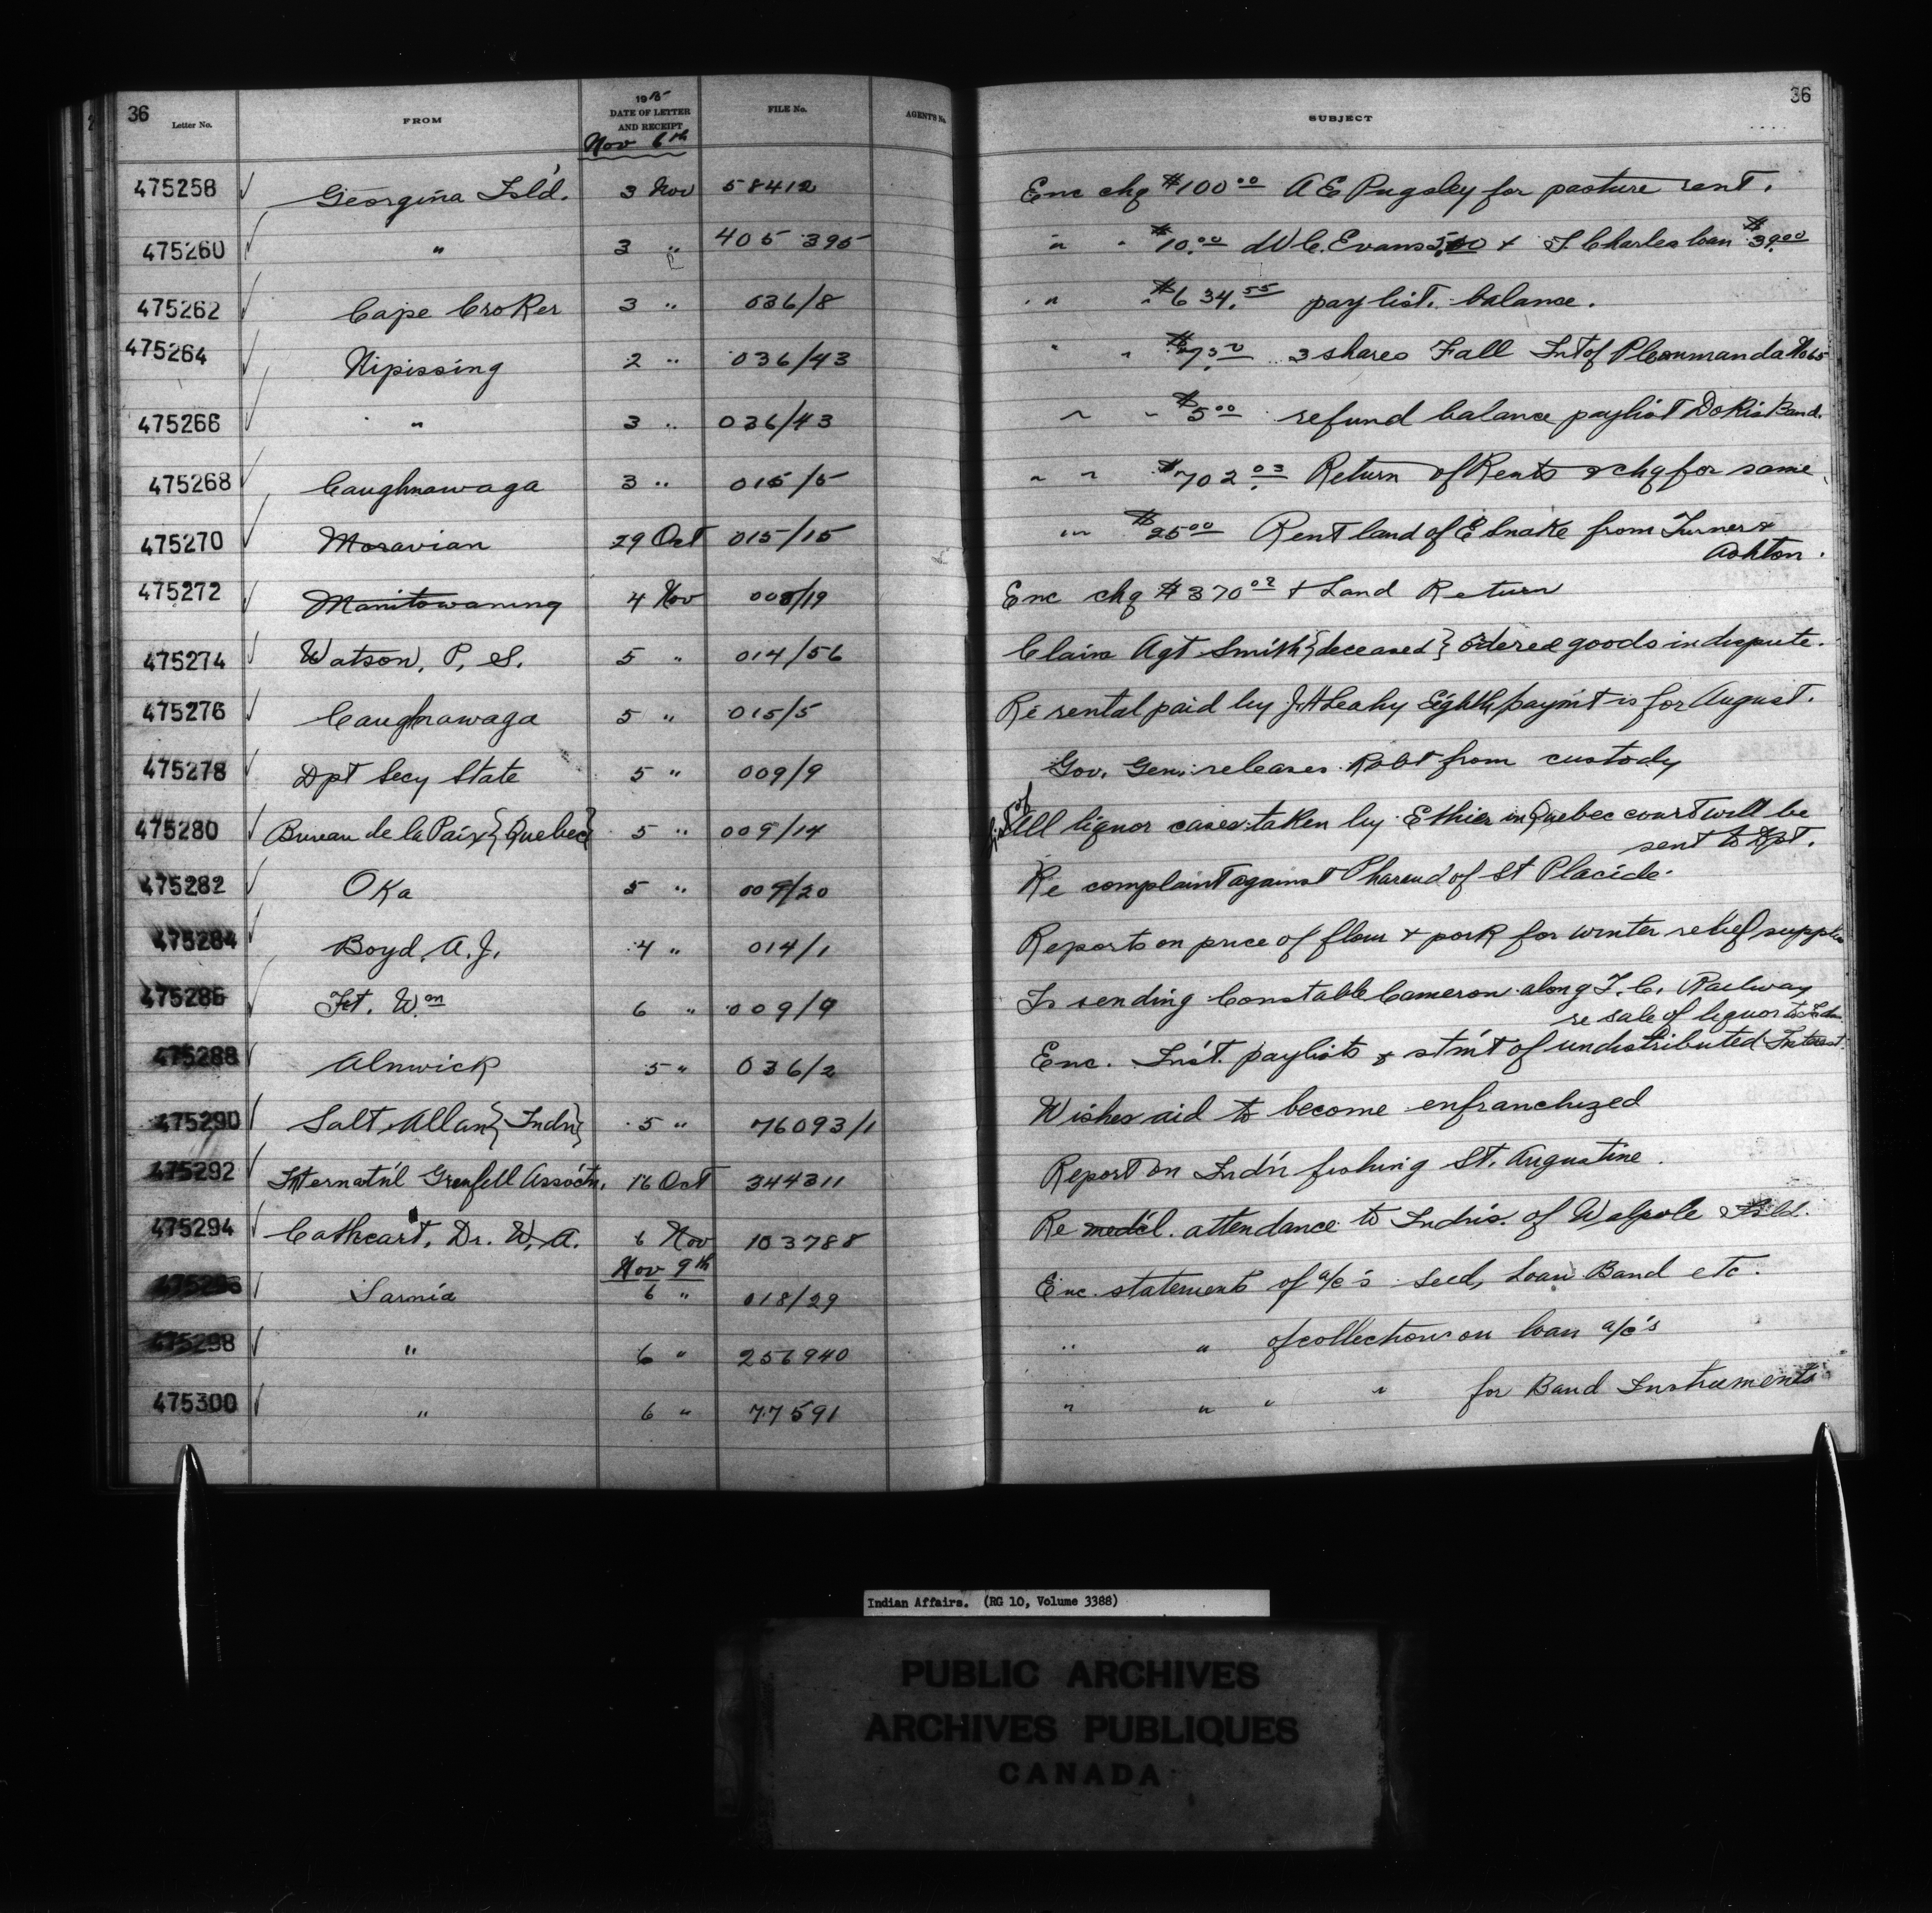 36
Letter No. FROM 1915 DATE OF LETTER AND RECEIPT FILE No. AGENT'S No. SUBJECT 36
Nov 6th
475258 ✓ Georgina Isl'd. 3 Nov 58412 Enc chq $100 00 A E Pugsley for pasture rent.
475260 ✓ " 3 " 405 395 " " $10.00 W C. Evans & J. Charles loan
475262 ✓ Cape Croker 3 " 036/8 " " $634.55 pay list. balance.
475264 ✓ Nipissing 2 " 036/43 " " 3 shares Fall Int of
475266 ✓ " 3 " 036/43 " " $5 00 refund balance paylist Dokis Band.
475268 ✓ Caughnawaga 3 " 015/5 " " $702.03 Return of Rents & chq for same
475270 ✓ Moravian 29 Oct 015/15 " " $25 00 Rent land of E Snake from Turner &
Ashton.
475272 Manitowaning 4 Nov 008/19 Enc chq $370 & Land Return
475274 ✓ Watson, P, S. 5 " 014/56 Claim Agt Smith {deceased} ordered goods in dispute.
475276 ✓ Caughnawaga 5 " 015/5 Re rental paid by J. H Leahy Eighth paym't is for August.
475278 ✓ Dpt Secy State 5 " 009/9 Gov. Gen. releases Robt from custody
475280 ✓ Bureau de la Paix {Quebec} 5 " 009/14 List of All liquor cases taken by Ethier in Quebec court will be
sent to Dpt.
475282 ✓ Oka 5 " 009/20 Re complaint against of St Placide.
475284 ✓ Boyd, A. J. 4 " 014/1 Reports on price of flour & pork for winter relief supplies
475286 ✓ Ft. Wm 6 " 009/9 Is sending Constable Cameron along T. C. Railway
re sale of liquor to Indns
475288 ✓ Alnwick 5 " 036/2 Enc. Int. paylists & stm't of undistributed Interest.
475290 ✓ Salt Allan {Indn} 5 " 76093/1 Wishes aid to become enfranchized
475292 ✓ Internat'nl Grenfell Assoc'tn. 16 Oct 344311 Report on Ind'n fishing St. Augustine.
475294 ✓ Cathcart, Dr. W. A. 6 Nov 103788 Re med'cl. attendance to Indn's. of Walpole Isld.
Nov 9th
475296 ✓ Sarnia 6 " 018/29 Enc. statements of a/c's Seed, Loan Band etc.
475298 ✓ " 6 " 256940 " " of collections on loan a/c's
475300 ✓ " 6 " 77591 " " " " for Band Instruments
Indian Affairs. (RG 10, Volume 3388)
PUBLIC ARCHIVES
ARCHIVES PUBLIQUES
CANADA